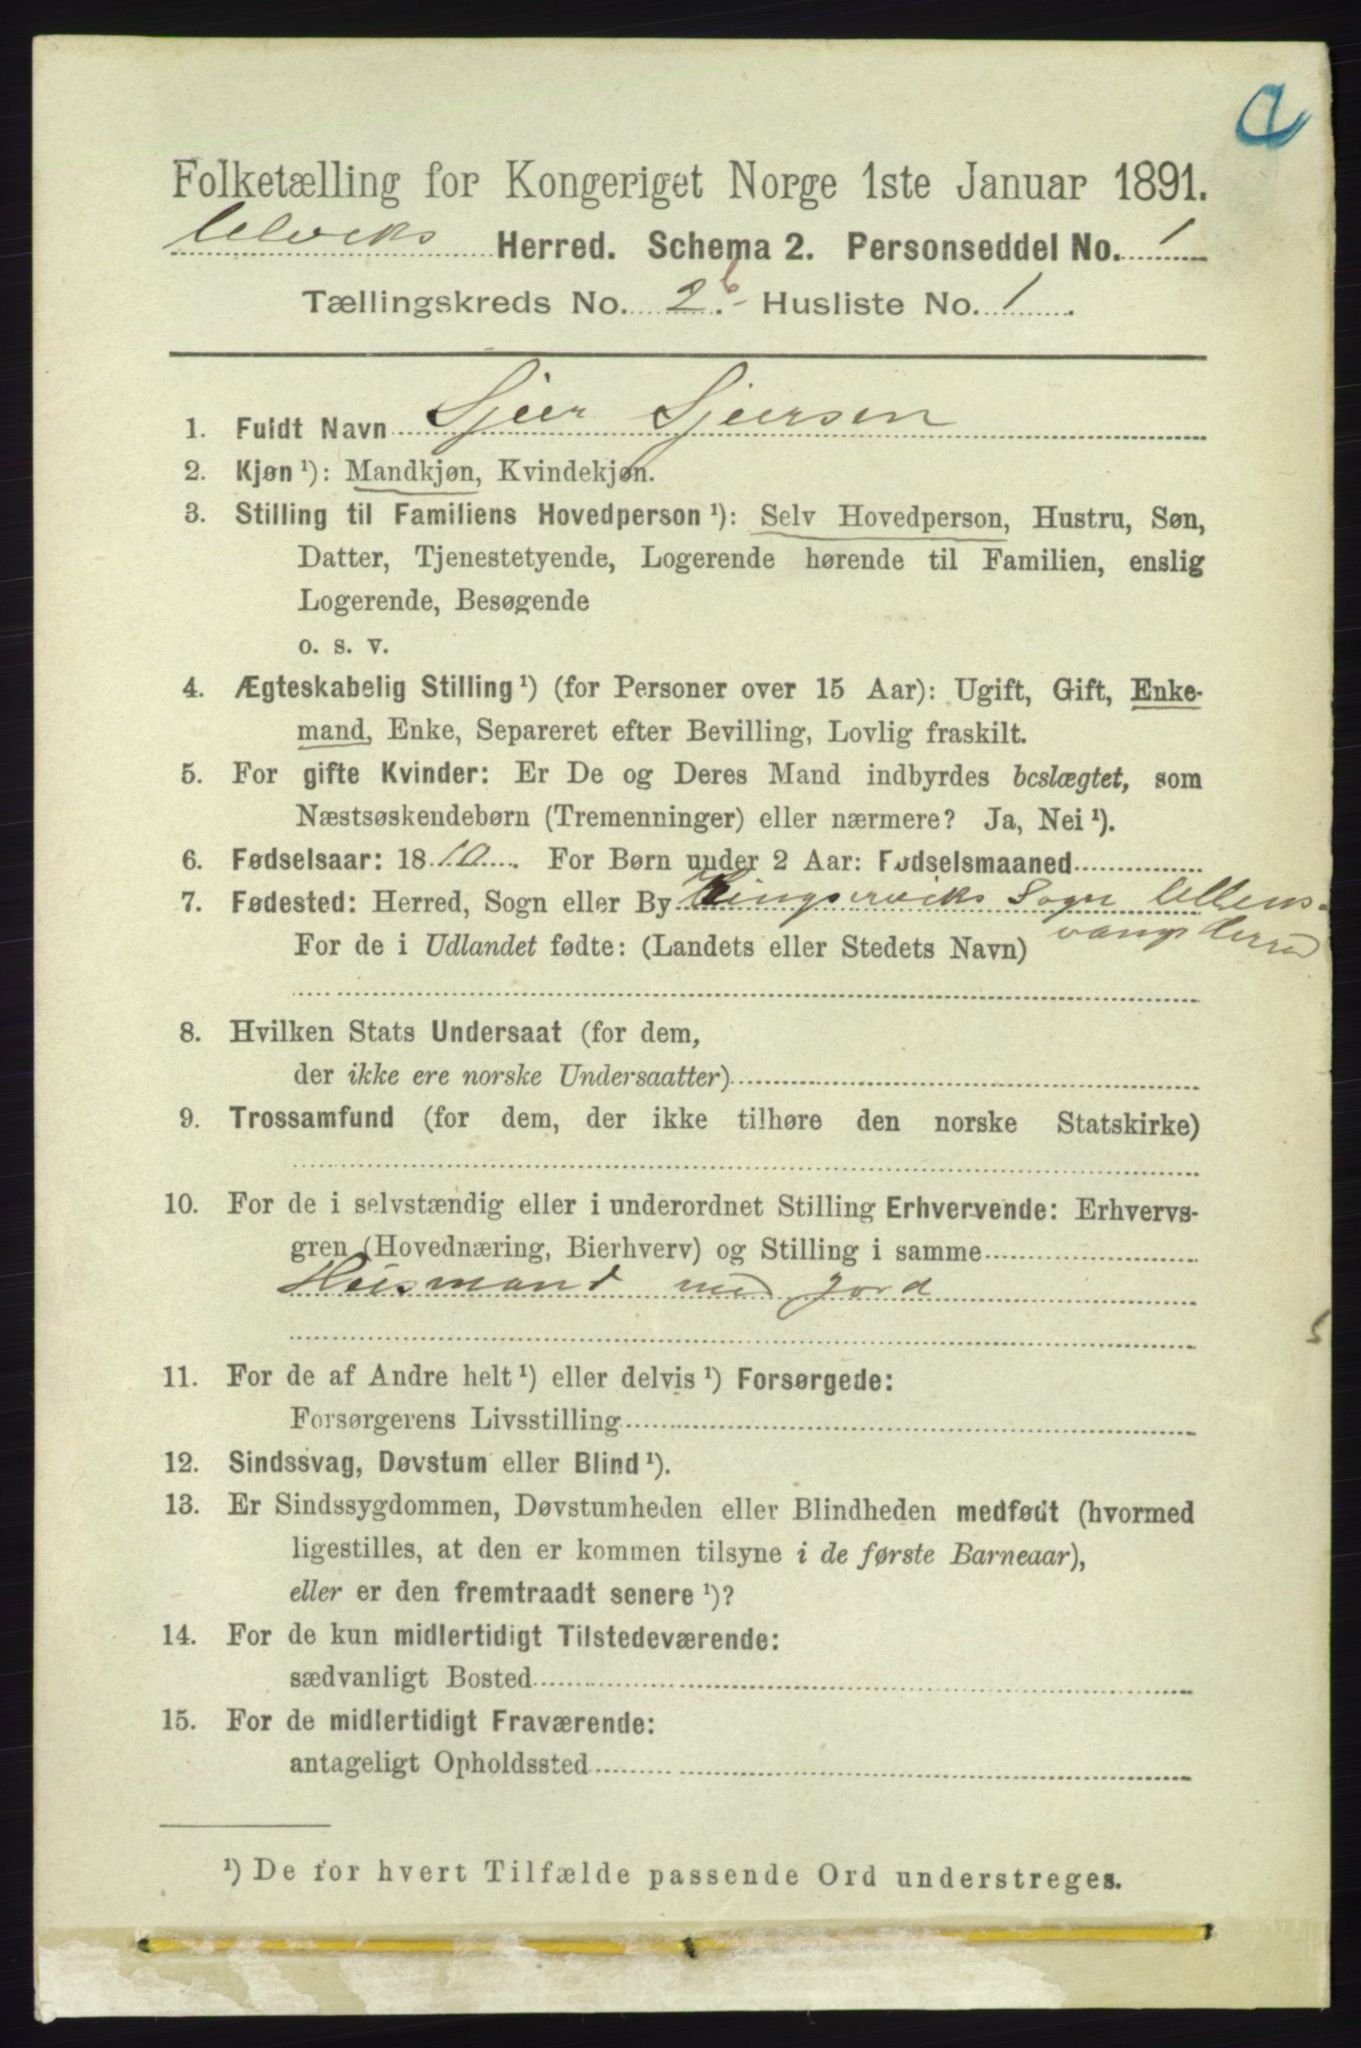 a
Folketælling for Kongeriget Norge 1ste Januar 1891.
Ulviks Herred. Schema 2. Personseddel No. 1
Tællingskreds No. 2b. Husliste No. 1.
1. Fuldt Navn Sjeer Sjeersen
2. Kjøn ¹): Mandkjøn, Kvindekjøn.
3. Stilling til Familiens Hovedperson ¹): Selv Hovedperson, Hustru, Søn,
Datter, Tjenestetyende, Logerende hørende til Familien, enslig
Logerende, Besøgende
o. s. v.
4. Ægteskabelig Stilling ¹) (for Personer over 15 Aar): Ugift, Gift, Enke-
mand, Enke, Separeret efter Bevilling, Lovlig fraskilt.
5. For gifte Kvinder: Er De og Deres Mand indbyrdes beslægtet, som
Næstsøskendebørn (Tremenninger) eller nærmere? Ja, Nei ¹).
6. Fødselsaar: 1810. For Børn under 2 Aar: Fødselsmaaned
7. Fødested: Herred, Sogn eller By Kingserviks Sogn Ullens-
vangs Herred
For de i Udlandet fødte: (Landets eller Stedets Navn)
8. Hvilken Stats Undersaat (for dem,
der ikke ere norske Undersaatter)
9. Trossamfund (for dem, der ikke tilhøre den norske Statskirke)
10. For de i selvstændig eller i underordnet Stilling Erhvervende: Erhvervs-
gren (Hovednæring, Bierhverv) og Stilling i samme
Huusmand med Jord
11. For de af Andre helt ¹) eller delvis ¹) Forsørgede:
Forsørgerens Livsstilling
12. Sindssvag, Døvstum eller Blind ¹).
13. Er Sindssygdommen, Døvstumheden eller Blindheden medfødt (hvormed
ligestilles, at den er kommen tilsyne i de første Barneaar),
eller er den fremtraadt senere ¹)?
14. For de kun midlertidigt Tilstedeværende:
sædvanligt Bosted
15. For de midlertidigt Fraværende:
antageligt Opholdssted
¹) De for hvert Tilfælde passende Ord understreges.